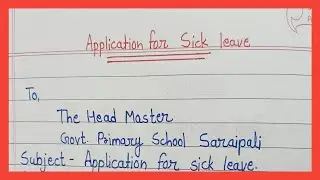 Application for Sick leave
To,
The Head Master
Govt. Primary School Saraipali
Subject - Application for sick leave.